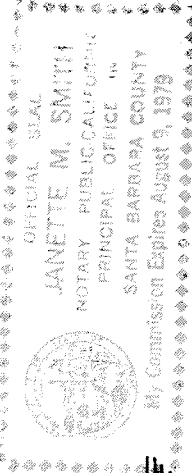 OFFICIAL SEAL
JANETTE M. SMITH
NOTARY PUBLIC-CALIFORNIA
PRINCIPAL OFFICE IN
SANTA BARBARA COUNTY
My Commission Expires August 9, 1979